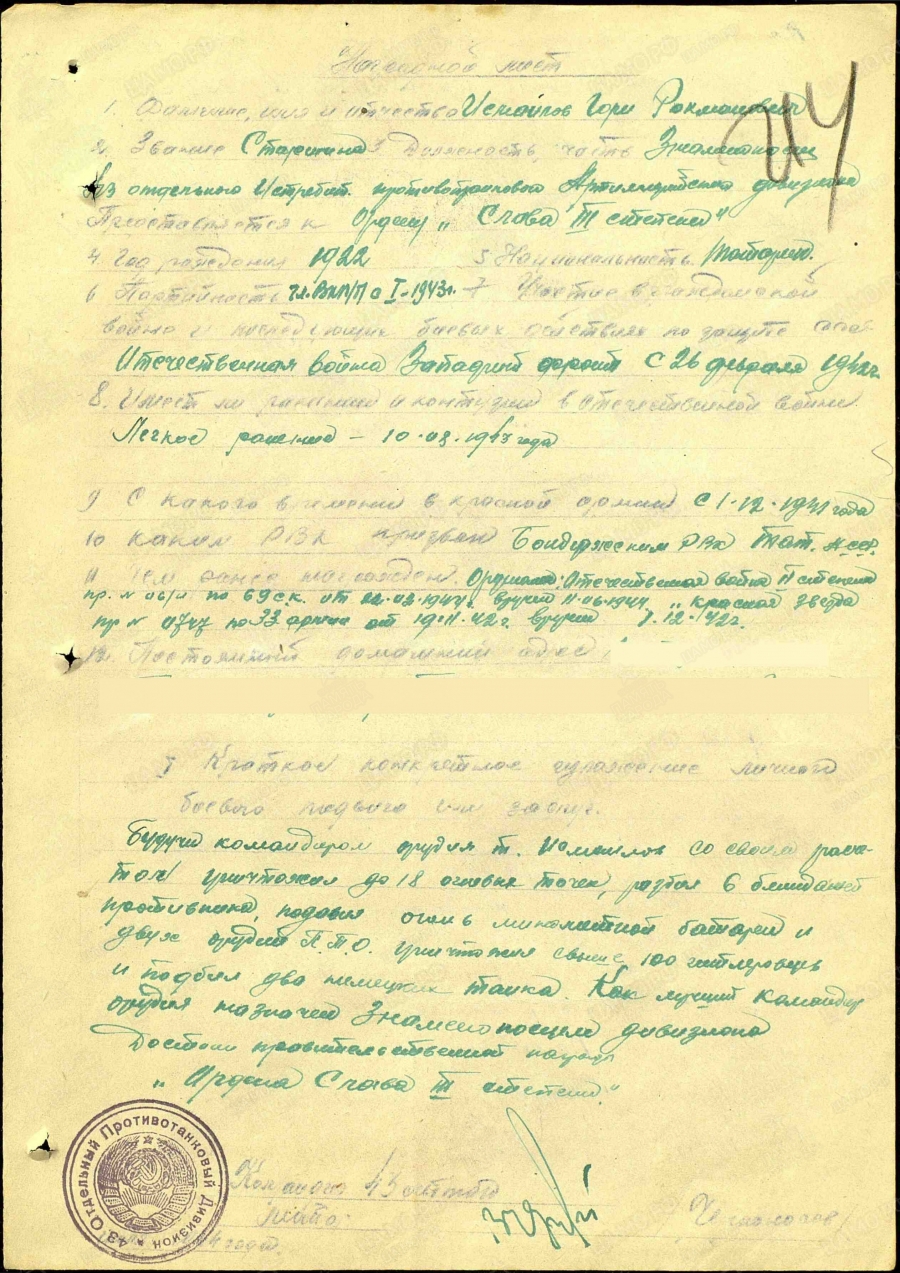 Наградной лист
1. Фамилие, имя и отчество Исмайлов Гори Рахманович
2. Звание Старшина 3 Должность, часть Знаменосец
43 отдельного Истребит. противотанкового Артиллерийского дивизиона
Представляется к Ордену "Слава III степени"
4. Год рождения 1922 5. Национальность Татарин.
6 Партийность чл. ВКП/П с I-1943г. 7 Участие в гражданской
войне и последующих боевых действиях по защите
Отечественная война Западный фронт с 26 февраля 1942г.
8. Имеет ли ранения и контузии в отечественной войне.
Легкое ранение - 10.03.1943 года
9 С какого времени в красной армии с 1.12.1941 года
10 каким РВК призван Бондюжским РВК Тат. АССР.
11 Чем ранее награжден. Орденами: Отечественная война II степени
пр. № 06/н по 69 с.к. от 22.03.1944г. вручен 11.06.1944 "Красная звезда
пр № 0747 по 33 армии от 19.11.42г. вручен 7.12.42г.
12. Постоянный домашний адрес:
I Краткое конкретное изложение личного
боевого подвига или заслуг.
Будучи командиром орудия т. Исмаилов со своим расче-
том уничтожил до 18 огневых точек, разбил 6 блиндажей
противника, подавил огонь минометной батареи и
двух орудий П.Т.О. уничтожил свыше 100 гитлеровцев
и подбил два немецких танка. Как лучший командир
орудия назначен Знаменосцем дивизиона
Достоин правительственной награды
"Ордена Слава III степени."
43 Отдельный Противотанковый Дивизион
Командир 43
4 года.